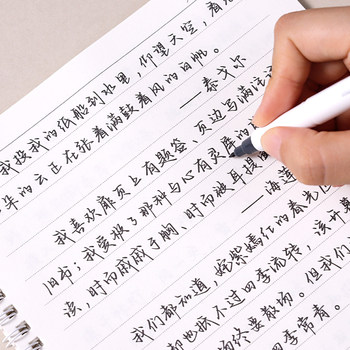 我投我的纸船到水里,仰望天空,看
的云正在张着满鼓着风的白帆。
——泰戈尔
我喜欢扉页上有题签、页边写满注
旧书;我爱极了那种与心有灵犀的
读,时而戚戚于胸、时而被耳提
——海莲
我们都知道,姹紫嫣红的春光
都也抵不过四季流转,该开幕
终要散场。但我们
四季常青。